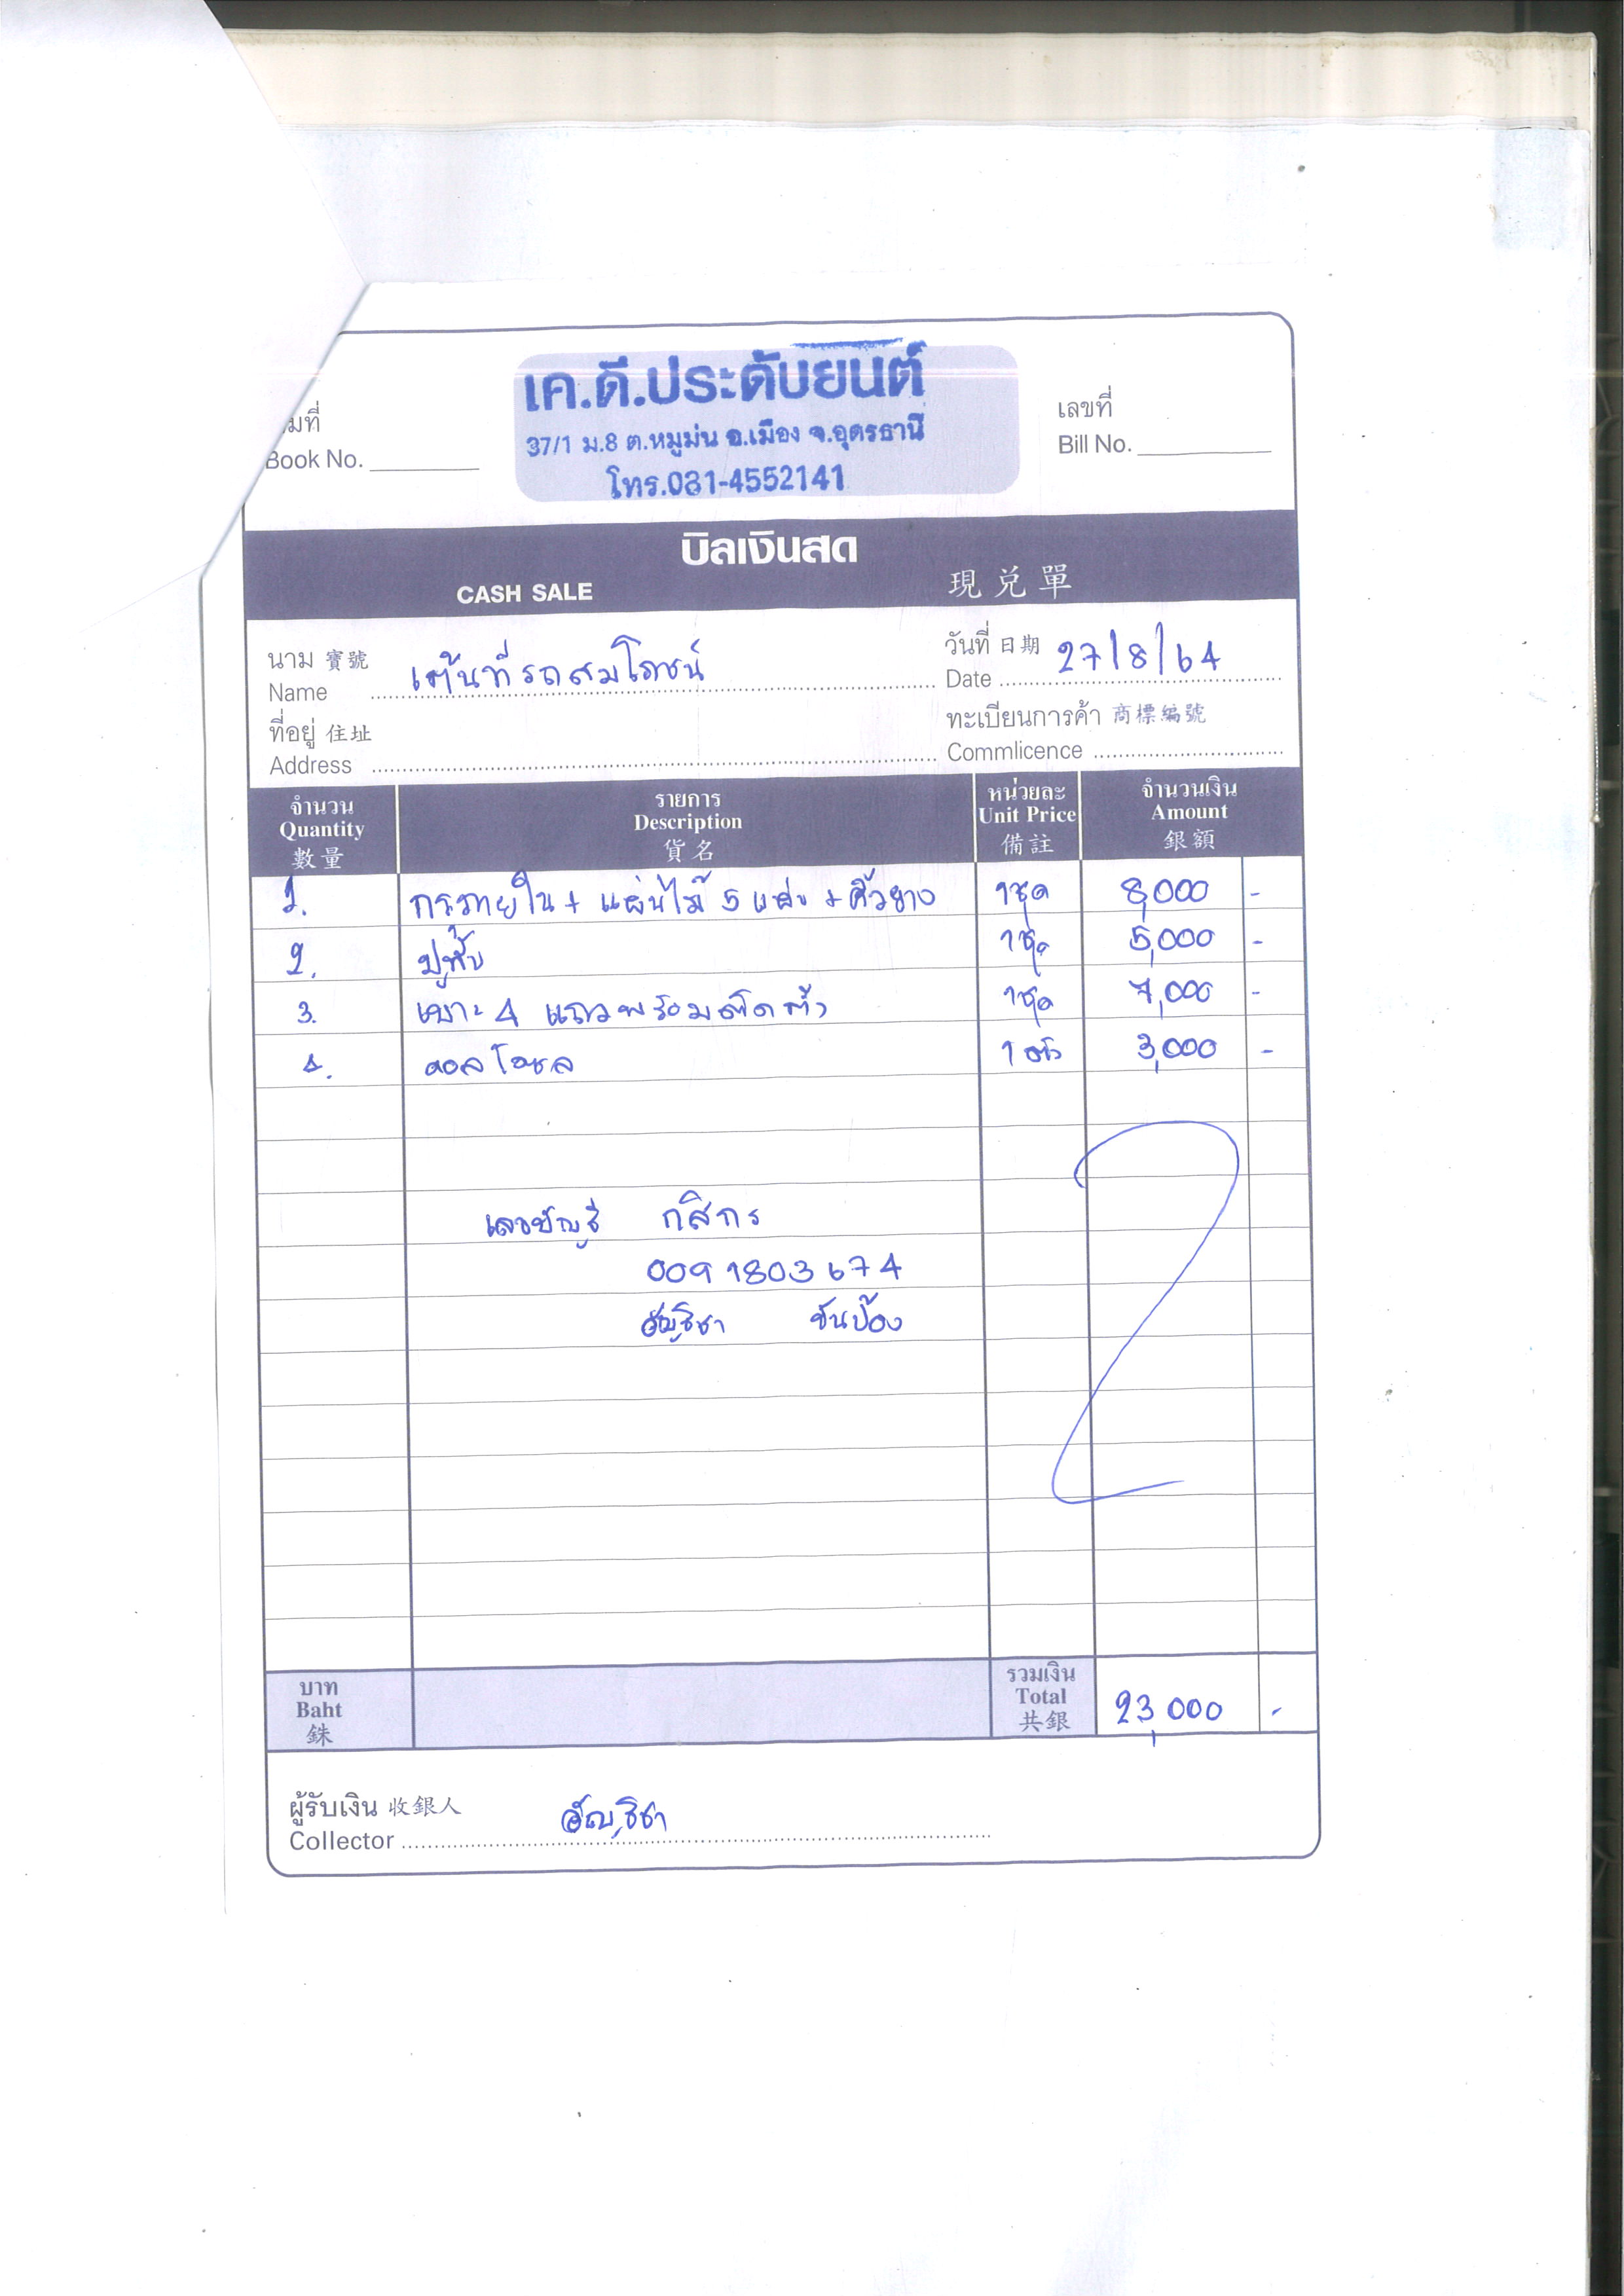 เค.ดี.ประดับยนต์
37/1 ม.8 ต.หมูม่น อ.เมือง จ.อุดรธานี
โทร.081-4552141
มที่
Book No.
เลขที่
Bill No.
บิลเงินสด
CASH SALE 現兌單
นาม 寶號
Name เต้นท์รถสมโภชน์
วันที่ 日期
Date 27/8/64
ที่อยู่ 住址
Address
ทะเบียนการค้า 商標編號
Commlicence
จำนวน รายการ หน่วยละ จำนวนเงิน
Quantity Description Unit Price Amount
數量 貨名 備註 銀額
1. + แผ่นไม้ 5 แผ่น + คิ้วยาง 1ชุด 8,000 -
2. ปูพื้น 1ชุด 5,000 -
3. เบาะ 4 แถวพร้อมติดตั้ง 1ชุด 7,000 -
4. คอลโซล 1 ตัว 3,000 -
เลขบัญชี กสิกร
0091803674
อัญชิชา ขันป้อง
บาท
Baht
銖
รวมเงิน
Total
共銀
23,000 -
ผู้รับเงิน 收銀人
Collector อัญชิชา